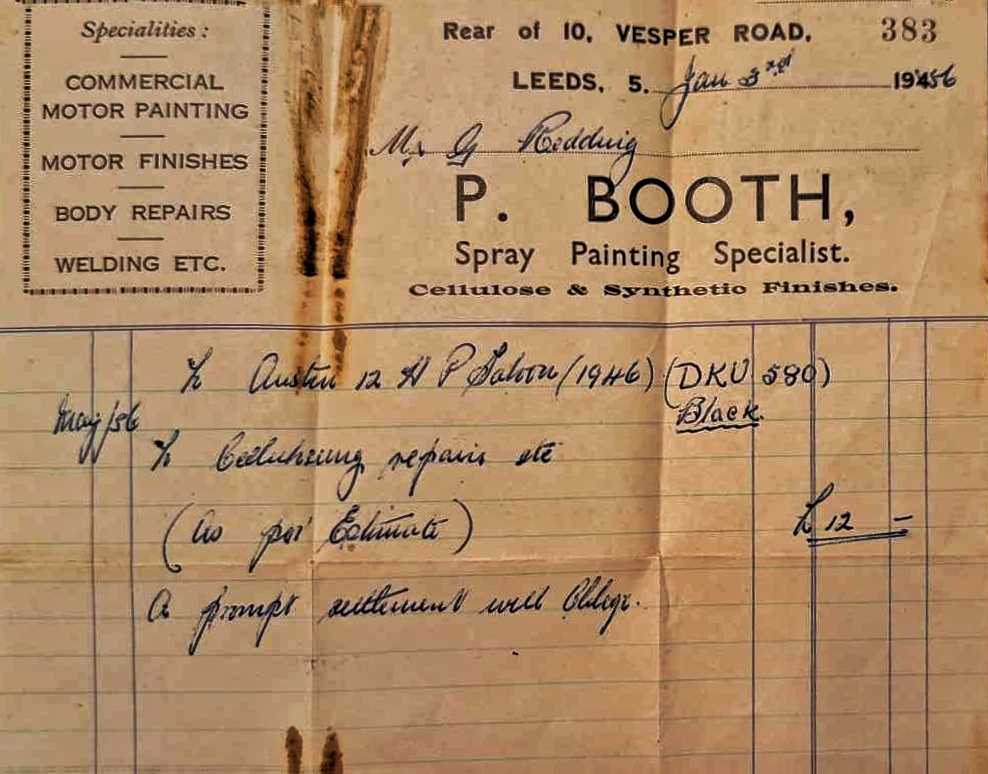 Specialities :
COMMERCIAL
MOTOR PAINTING
MOTOR FINISHES
BODY REPAIRS
WELDING ETC.
Rear of 10, VESPER ROAD, 383
LEEDS, 5. Jan 3rd 19456
Mr G Redding
P. BOOTH,
Spray Painting Specialist.
Cellulose & Synthetic Finishes.
To Austin 12 H P Saloon (1946) (DKU 580)
Black.
May/56
To Cellulosing repairs etc
(As per Estimate) £12 –
A prompt settlement will Oblige.